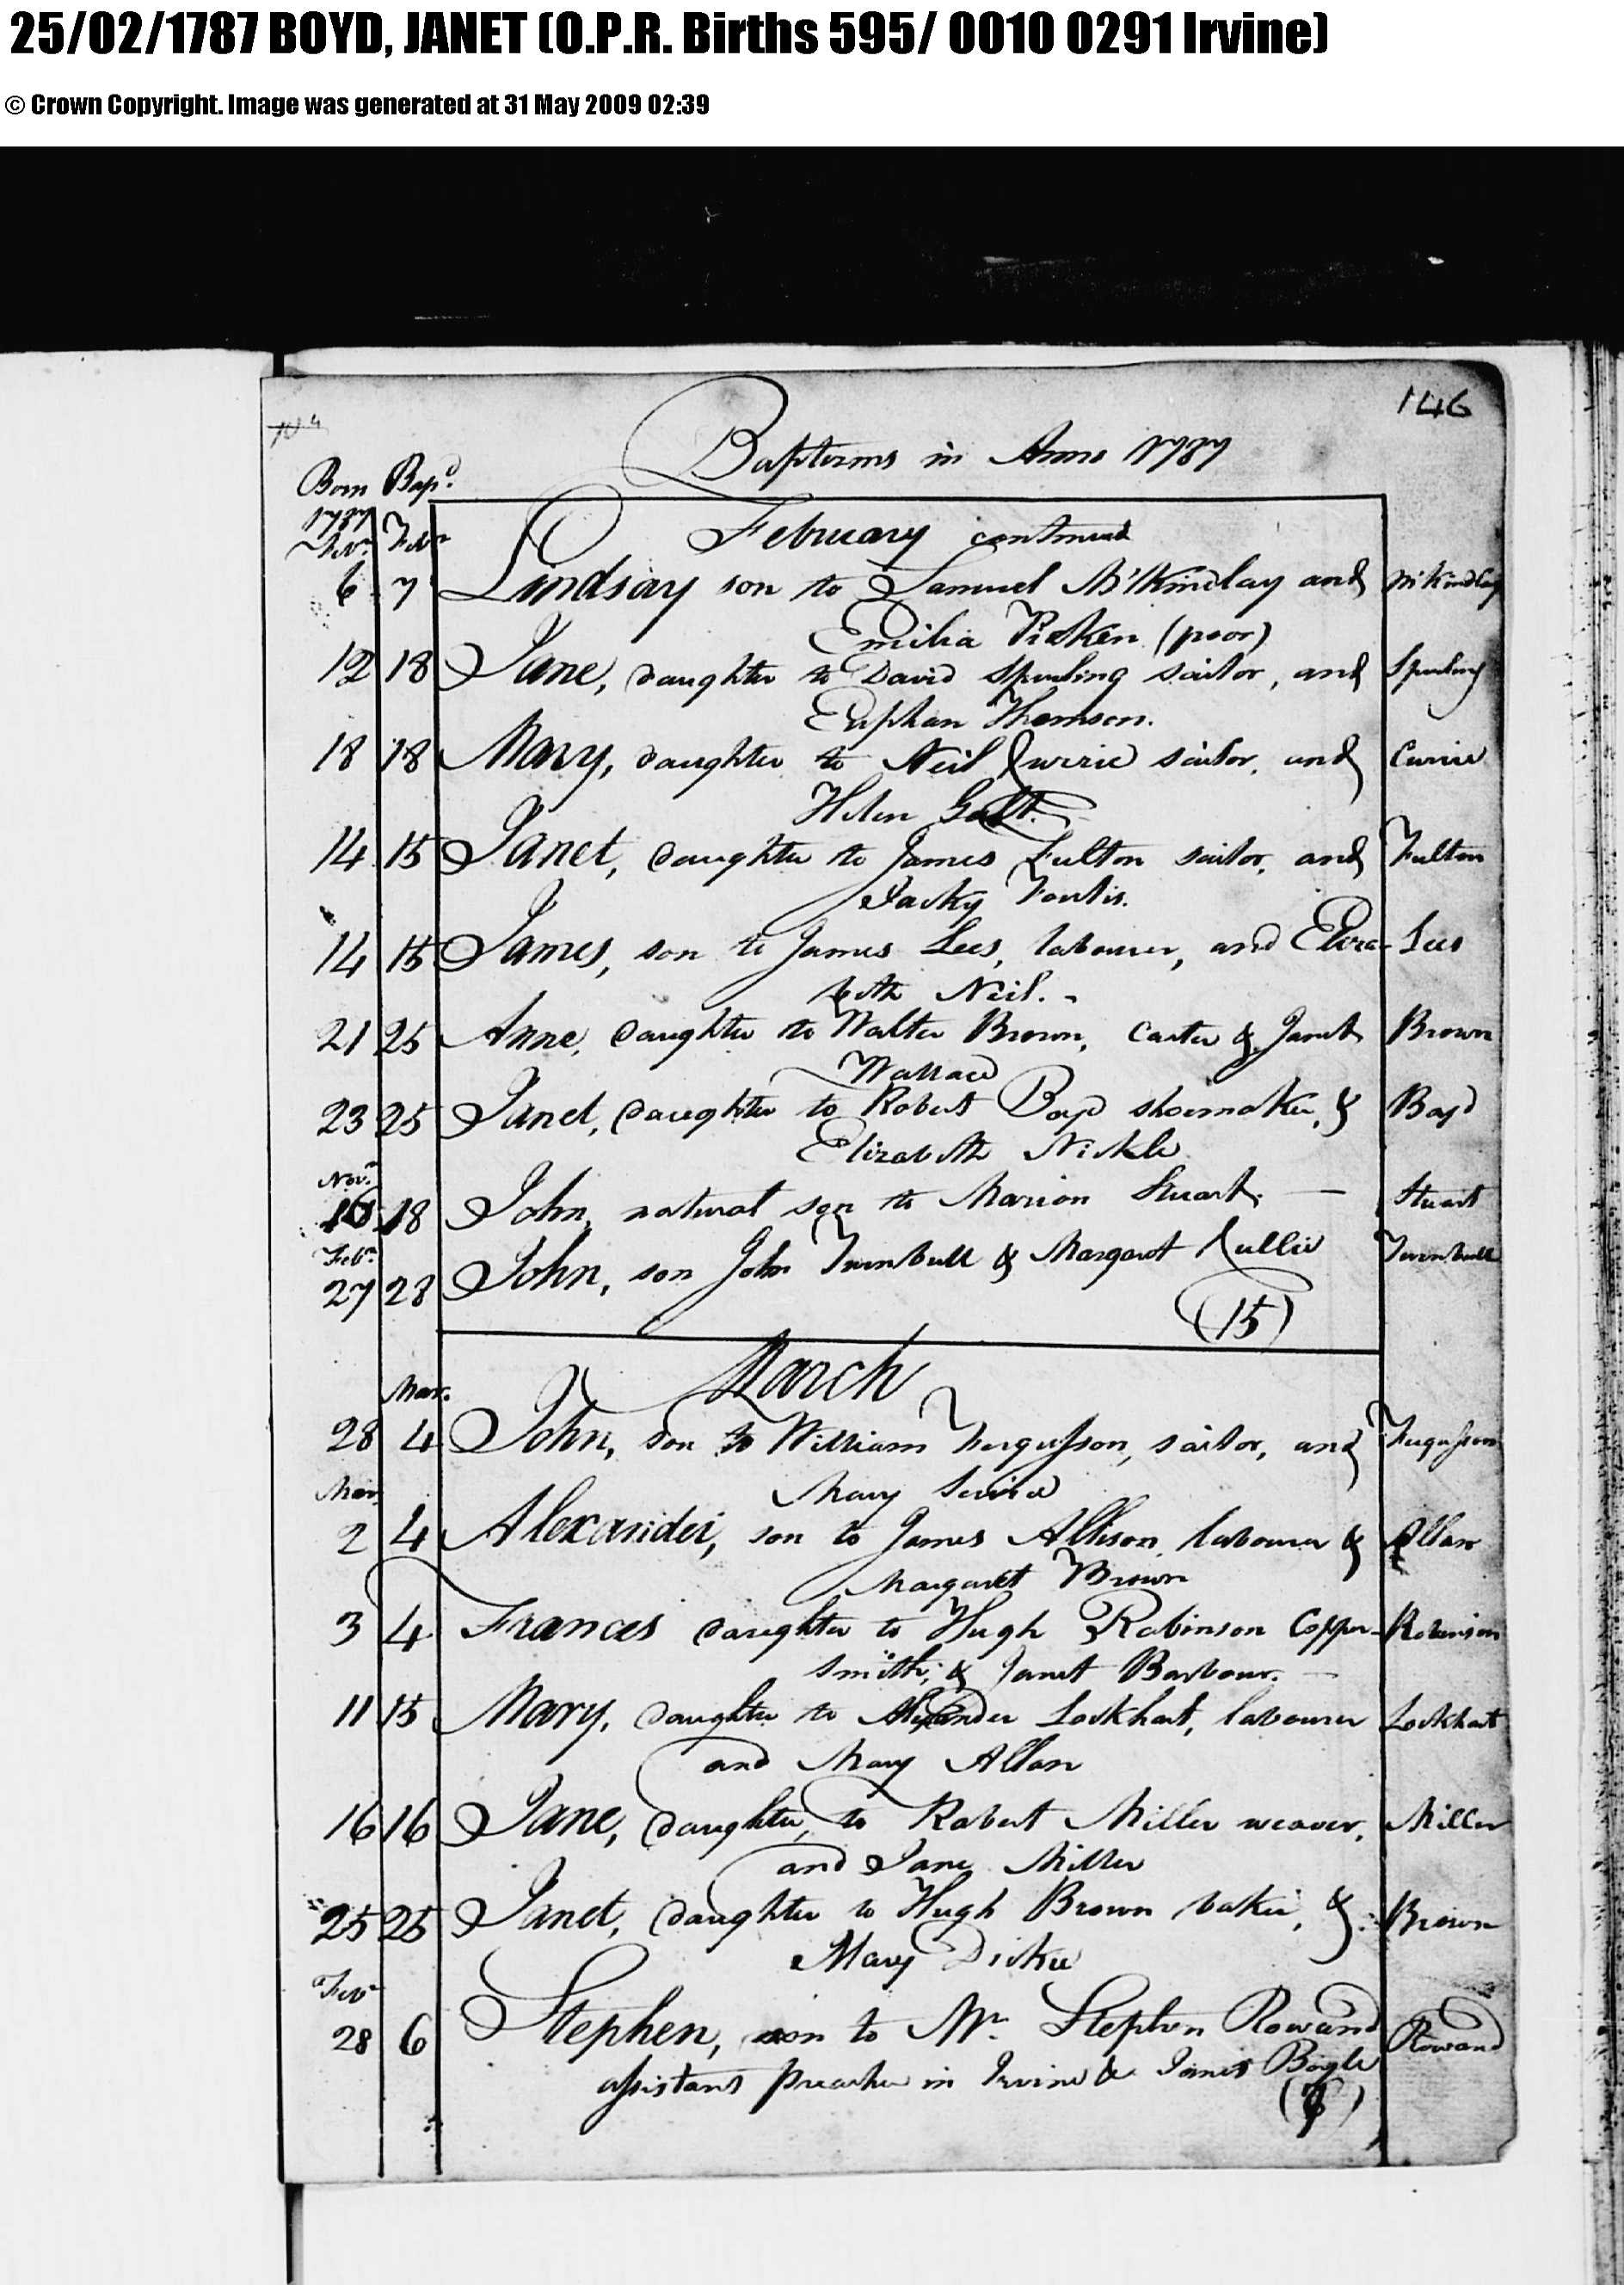 25/02/1787 BOYD, JANET (O.P.R. Births 595/ 0010 0291 Irvine)
© Crown Copyright. Image was generated at 31 May 2009 02:39
146
Baptisms in Anno 1787
Born Bapd.
1787
Febr. Febr
February continued
6 7 Lindsay son to Samuel McKindlay and McKindlay
Emilia Picken (poor)
12 18 Jane, daughter to David Spurling sailor, and Spurling
Euphan Thomson.
18 18 Mary, daughter to Neil Currie sailor, and Currie
Helen Galt.
14 15 Janet, daughter to James Fulton sailor, and Fulton
Jacky Foulis.
14 15 James, son to James Lees, labourer, and Eliza- Lees
beth Neil. -
21 25 Anne, daughter to Walter Brown, Carter & Janet Brown
Wallace
23 25 Janet, daughter to Robert Boyd shoemaker, & Boyd
Elizabeth Nickle
Novr.
18 John, natural son to Marion Stuart. — Stuart
Febr.
27 28 John, son John Turnbull & Margaret Cullie Turnbull
(15)
March
Mar.
28 4 John, son to William Fergusson, sailor, and Fergusson
Mary
Mar.
2 4 Alexander, son to James Allison, labourer & Allan
Margaret Brown
3 4 Frances daughter to Hugh Robinson Copper- Robinson
smith, & Janet Barbour. —
11 15 Mary, daughter to Alexander Lockhart, labourer Lockhart
and Mary Allan
16 16 Jane, daughter, to Robert Miller weaver, Miller
and Jane Miller
25 25 Janet, daughter to Hugh Brown baker, & Brown
Mary Dickie
Febr
28 6 Stephen, son to Mr. Stephen Rowand Rowand
assistant preacher in Irvine & Janet Boyle